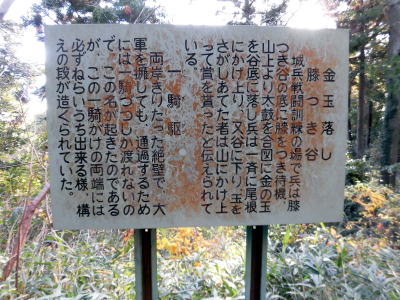 金玉落し
膝つき谷
城兵戦闘訓練の場で兵は膝
つき谷の底に膝をつき待機
山上より太鼓を合図に金の玉
を谷底に落し兵は一斉に尾根
にかけ上り、又谷に下り、玉を
さがしあてた者は山にかけ上
って賞を貰ったと伝えられて
いる
一騎駆
両岸きりたった絶壁で、大
軍を擁しても、通過するため
には一騎づつしか渡れないの
で、この名が起きたのである
が、この一騎がけの両端には
必ずねらいうち出来る様、構
えの段が造くられていた。